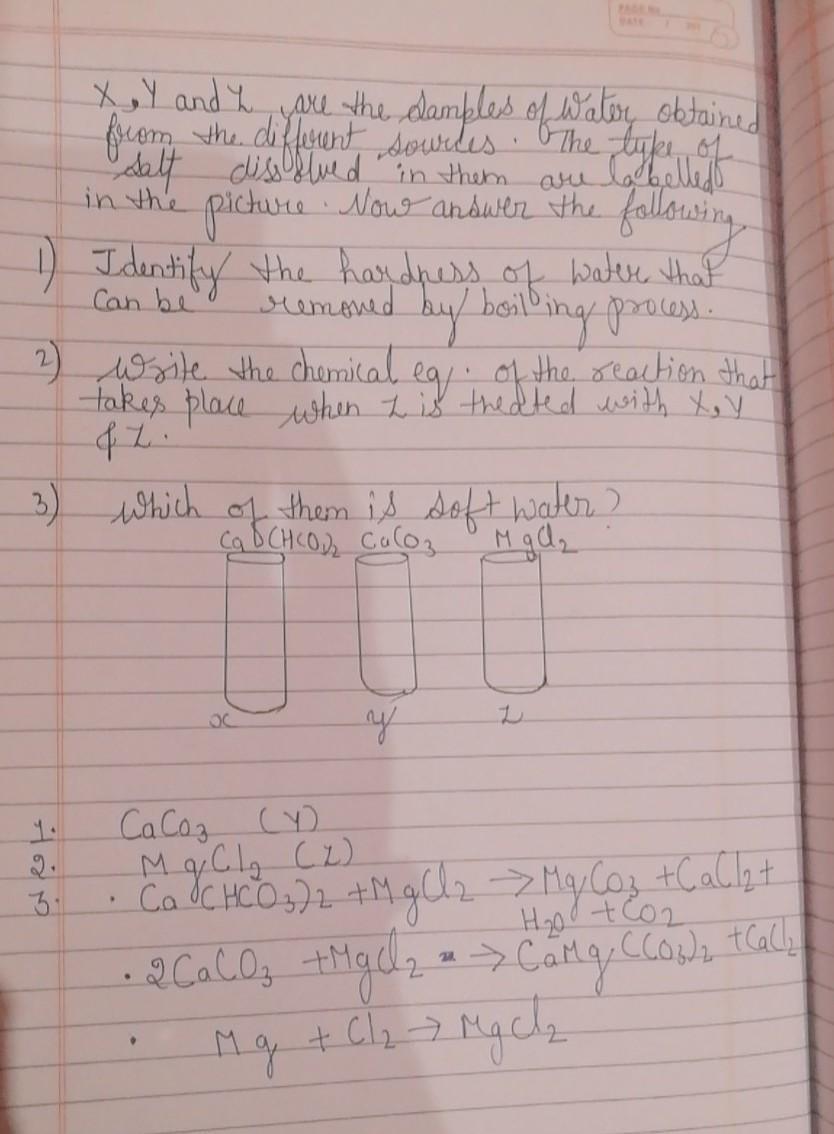 PAGE No
DATE
X, Y and Z are the samples of water obtained
from the different sources. The type of
salt dissolved in them are labelled
in the picture. Now answer the following
1) Identify the hardness of water that
can be removed by boiling process.
2) Write the chemical eq. of the reaction that
takes place when Z is treated with X, Y
& Z.
3) Which of them is soft water?
Ca(HCO3)2 CaCO3 MgCl2
x y z
1. CaCO3 (Y)
2. MgCl2 (Z)
3. • Ca(HCO3)2 + MgCl2 → MgCO3 + CaCl2 +
H2O + CO2
• 2CaCO3 + MgCl2 → CaMg(CO3)2 + CaCl2
• Mg + Cl2 → MgCl2